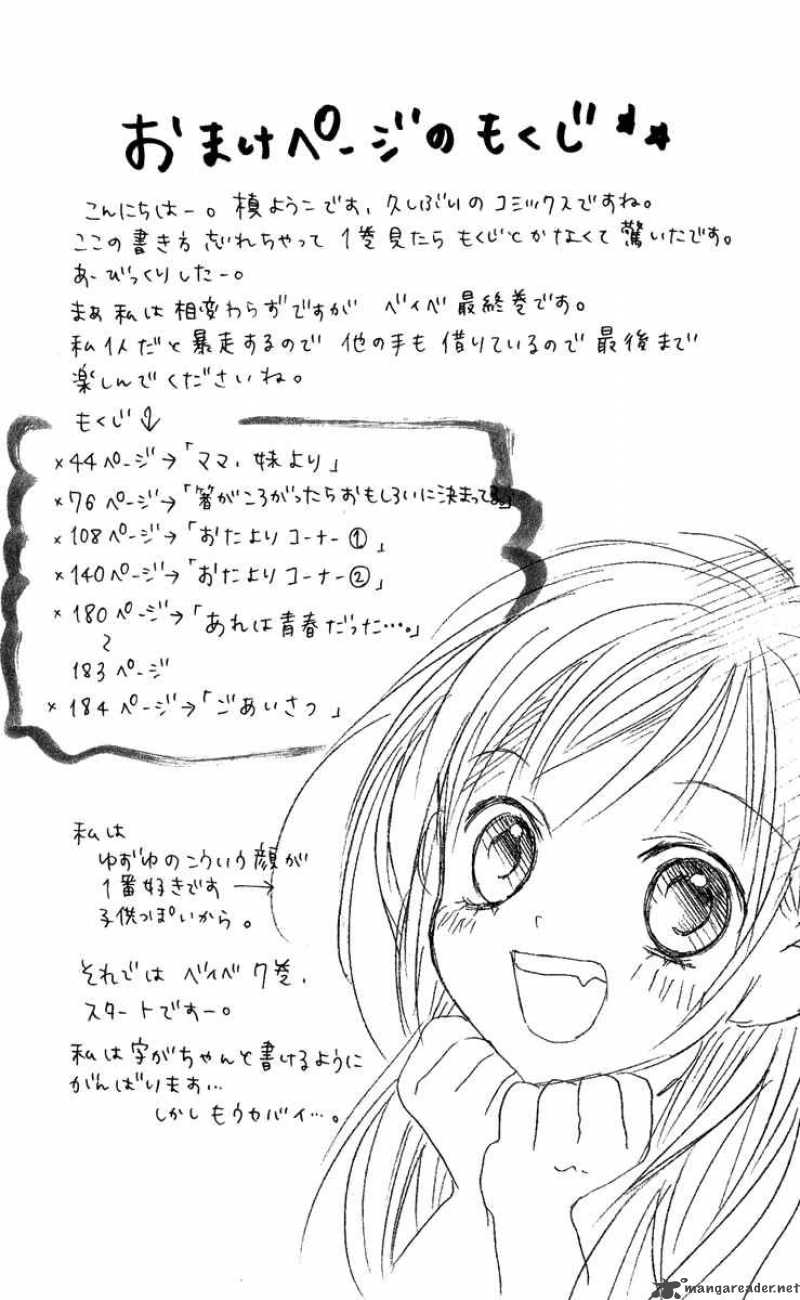 おまけページのもくじ**
こんにちはー。槙ようこです、久しぶりのコミックスですね。
ここの書き方忘れちゃって1巻見たらもくじとかなくて驚いたです。
あーびっくりしたー。
まぁ私は相変わらずですが ベイベ最終巻です。
私1人だと暴走するので他の手も借りているので最後まで
楽しんでくださいね。
もくじ↓
×44ページ→「ママ、妹より」
×76ページ→「箸がころがったらおもしろいに決まってる」
×108ページ→「おたよりコーナー①」
×140ページ→「おたよりコーナー②」
×180ページ→「あれは青春だった…。」
〜
183ページ
×184ページ→「ごあいさつ」
私は
ゆずゆのこういう顔が
1番好きです→
子供っぽいから。
それではベイベ7巻、
スタートですー。
私は字がちゃんと書けるように
がんばります…
しかしもうヤバイ…。
mangareader.net